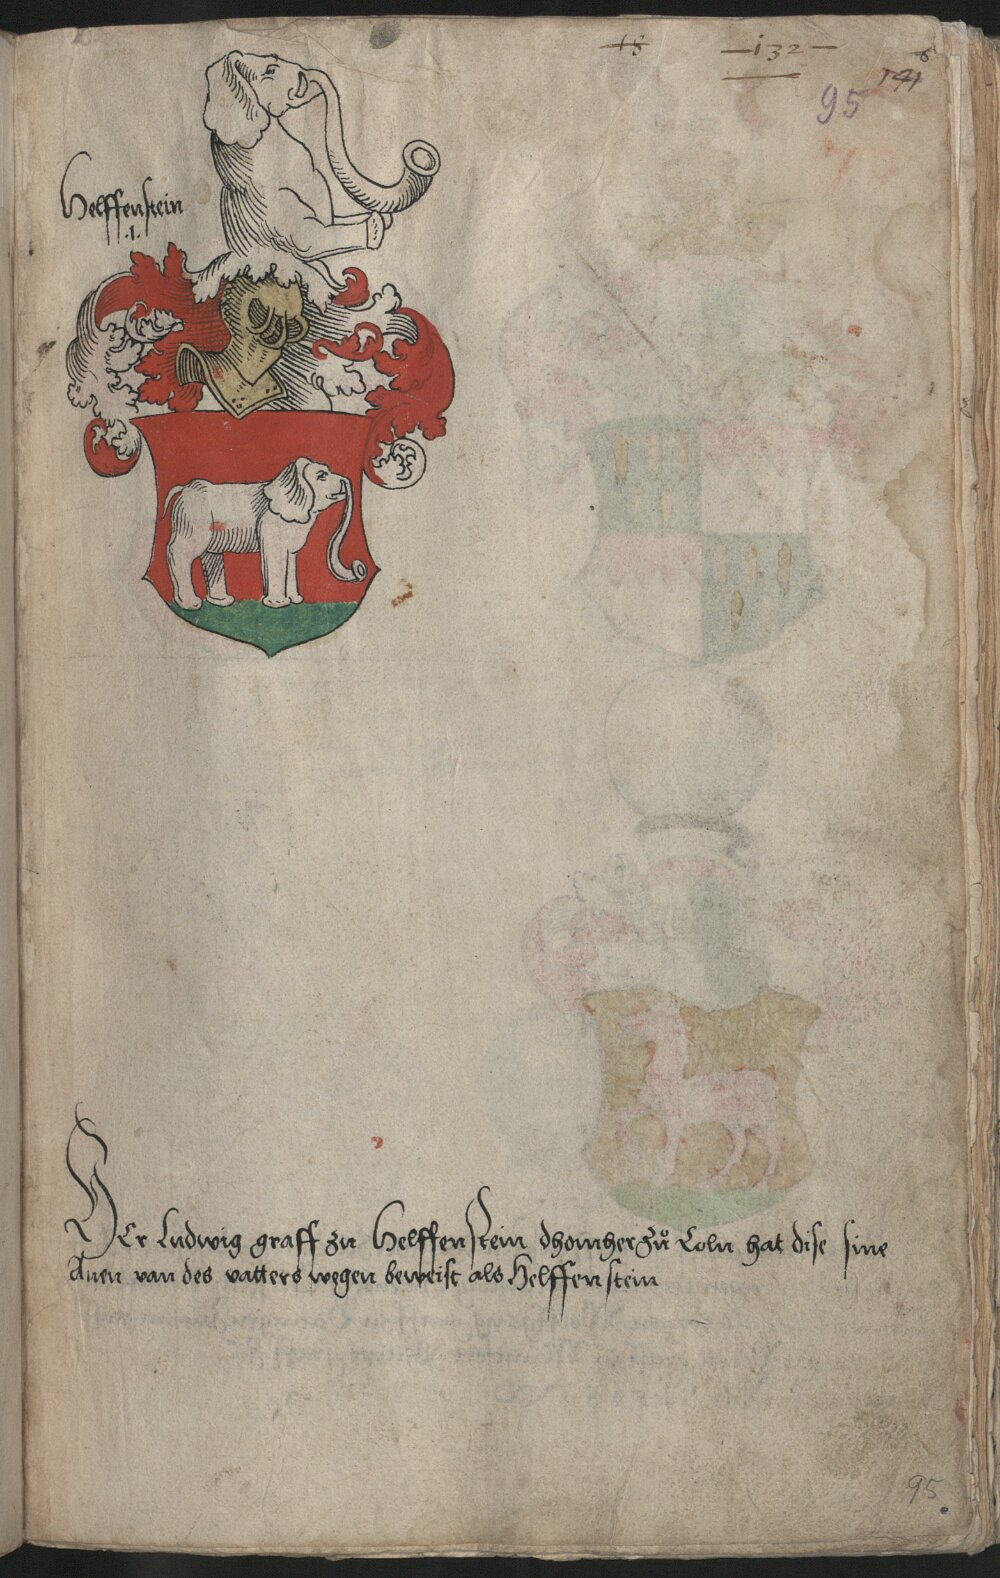 18
-132-
141
6
95
Helffenstein
.1.
HEr Ludwig graff zu Helffenstein dhomher zů Coln hat dise sine
Anen van des vatters wegen beweist als Helffenstein
95